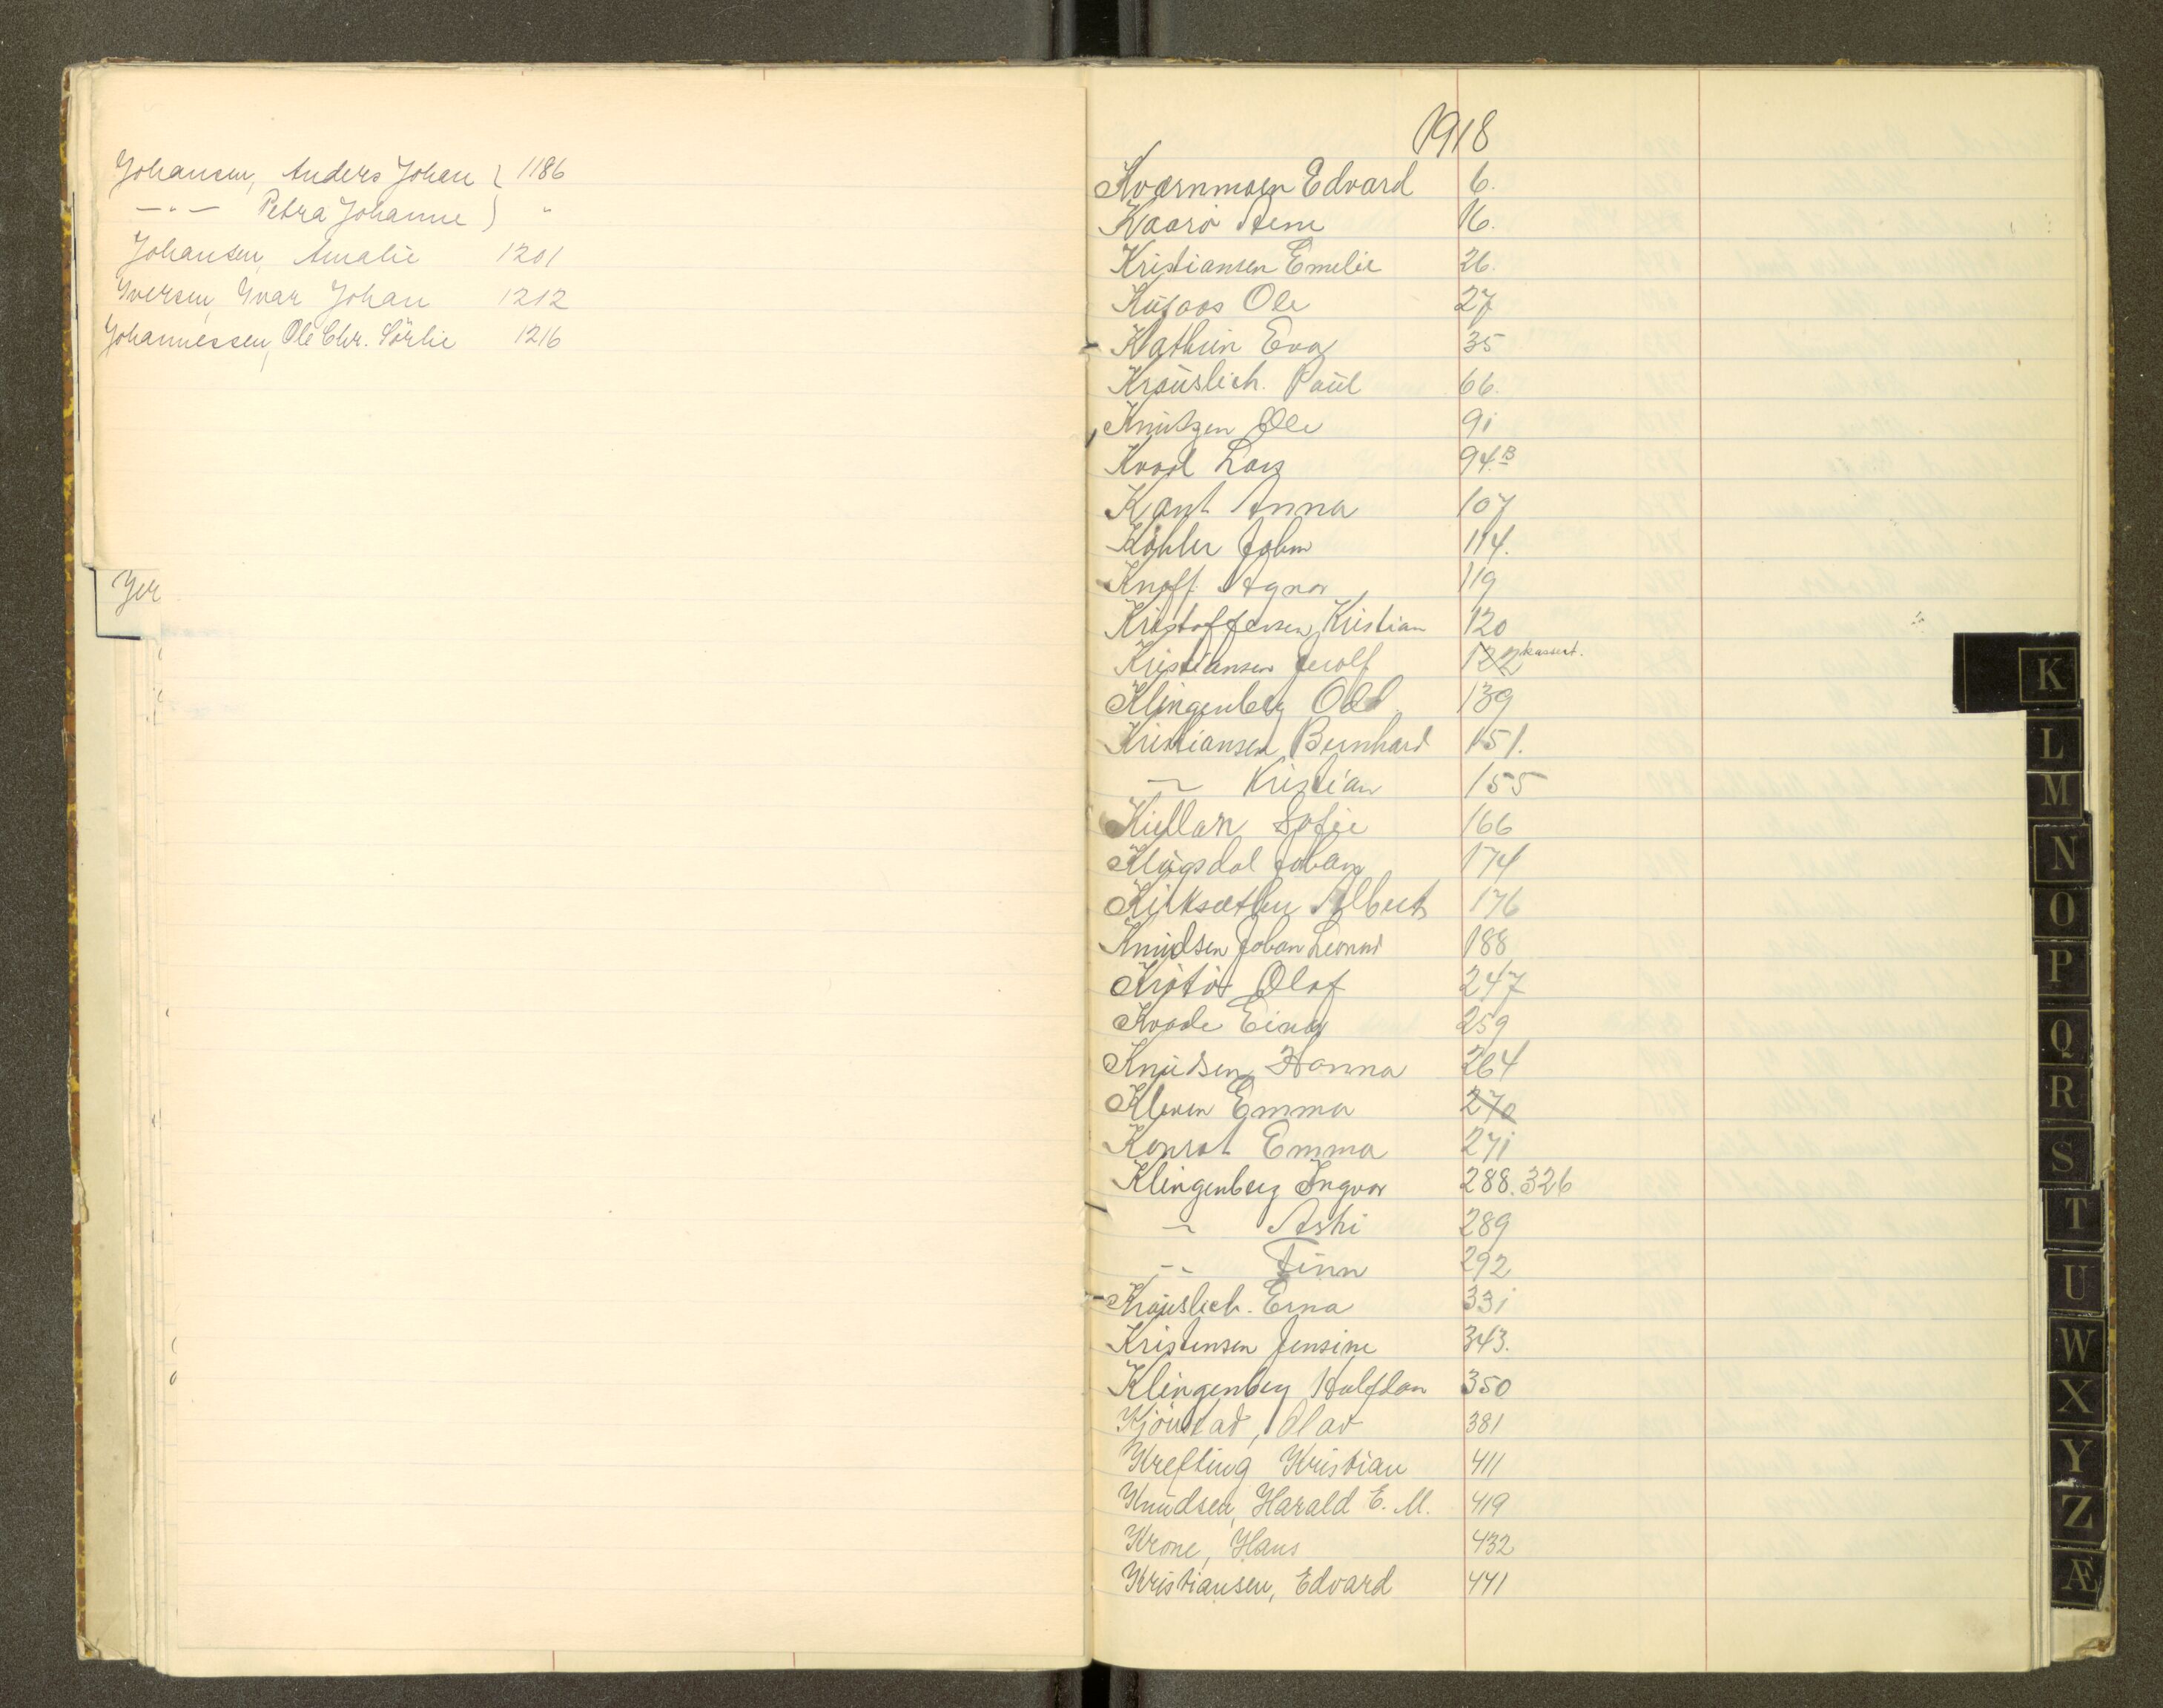 Johansen, Anders Johan } 1186
—"— Petra Johanne ) "
Johansen, Amalie 1201
Iversen, Ivar Johan 1212
Johannessen, Ole Chr. Sörlie 1216
Jer
1918
Kværnmoen Edvard 6.
Kaarö 16.
Kristiansen Emilie 26.
Ole 27
Kathrin Eva 35
Kräuslich. Paul 66.
Knutzen Ole 91
Kvaal Lars 94.B
Kant Anna 107
Köhler John 114.
Knoff Agnar 119
Kristoffersen Kristian 120
Kristiansen 122 kassert.
Klingenberg Odd 139
Kristiansen Bernhard 151.
— Kristian 155
Kielland Sofie 166
Johan 174
Kirksæther Albert 176
Knudsen Johan Leonard 188
Kjøtöt Olaf 247
Kvade Einar 259
Knudsen Hanna 264
Kleven Emma 270
Konrat Emma 271
Klingenberg Ingvar 288. 326
— Ashi 289
-- Finn 292
Kräuslich. Erna 331
Kristensen Jensine 343.
Klingenberg Halfdan 350
Kjönstad, Olav 381
Krefting Kristian 411
Knudsen, Harald E. M. 419
Krone, Hans 432
Kristiansen, Edvard 441
K
L
M
N
O
P
Q
R
S
T
U
W
X
Y
Z
Æ